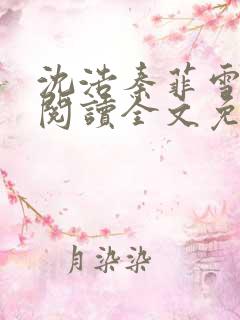 沈浩秦菲雪
閱讀全文免
月染染